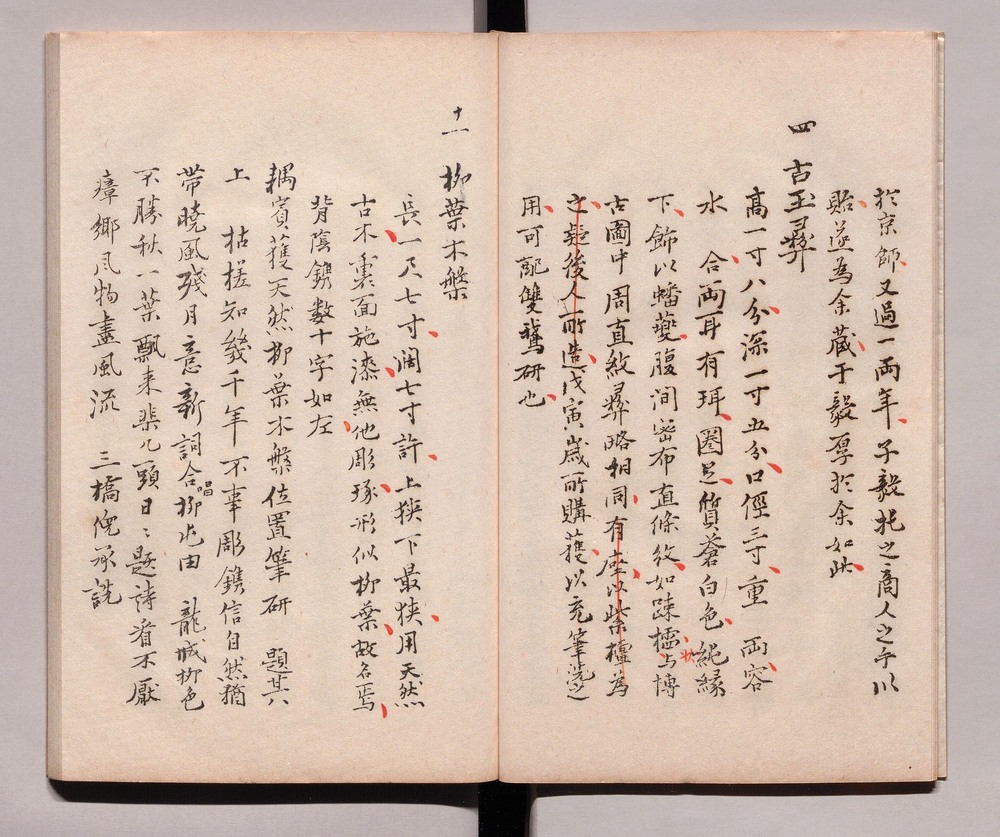 於京師又過一両年子毅托之商人之手以
貽遂為余蔵于毅厚於余如此
四 古玉彛
高一寸八分深一寸五分口径三寸重 両容
水 合両耳有珥圏足質蒼白色縄縁
下飾以蟠夔腹間密布直條紋如踈櫺状与博
古圖中周直紋彛略相同有座以紫檀為
之疑後人所造戊寅歳所購獲以充筆洗之
用可配雙鵞研也
十一 柳葉木槃
長一尺七寸濶七寸許上狭下最狭用天然
古木裏面施漆無他彫琢形似柳葉故名焉
背陰鐫数十字如左
耦賓獲天然柳葉木槃位置筆研 題其
上 枯槎知幾千年不事彫鐫信自然猶
帯暁風残月意新詞合唱柳屯田 龍城柳色
不勝秋一葉飄来棐几頭日々題詩看不厭
瘴郷風物盡風流 三橋倪承詵